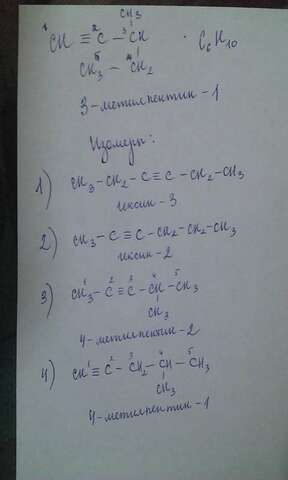 CH3
1 CH ≡ 2C – 3CH · C6H10
5CH3 – 4CH2
3-метилпентин-1
Изомеры:
1) CH3-CH2-C≡C-CH2-CH3
гексин-3
2) CH3-C≡C-CH2-CH2-CH3
гексин-2
3) 1CH3-2C≡3C-4CH-5CH3
CH3
4-метилпентин-2
4) 1CH≡2C-3CH2-4CH-5CH3
CH3
4-метилпентин-1